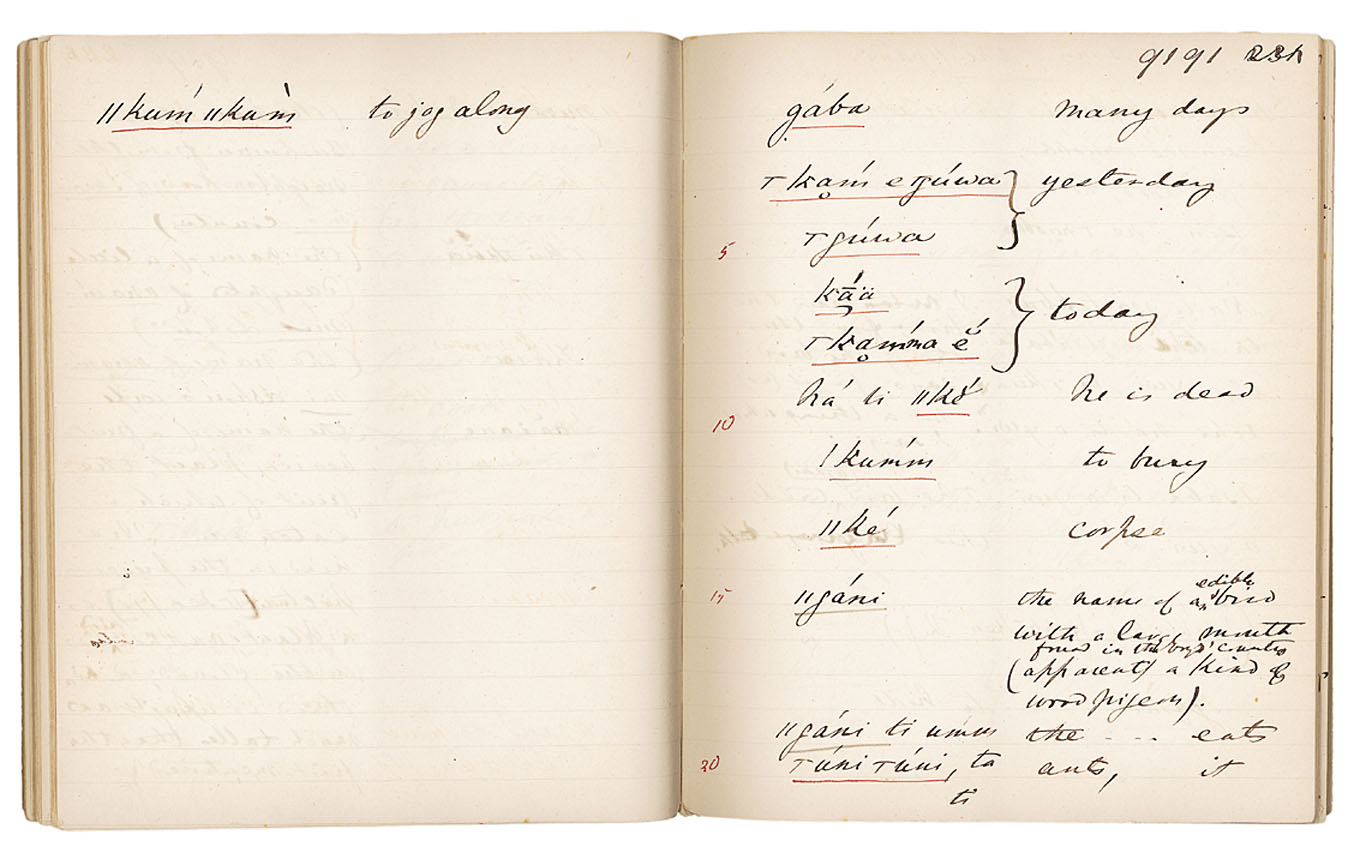 ǁkum̀ ǁkum̀ to jog along
9191 231
gába many days
тkḁḿ e ŋúwa } yesterday
5 т gúwa
kā́ä } today
т kḁḿma ĕ́
há ti ǁkŏ́ he is dead
10
ǀkumḿ to bury
ǁké corpse
15 ǁgáni the name of an edible bird
with a large mouth
found in the boys' country
(apparently a kind of
wood pigeon).
ǁgáni ti umm the - - - eats
20 тúni тúni, ta ants, it
ti